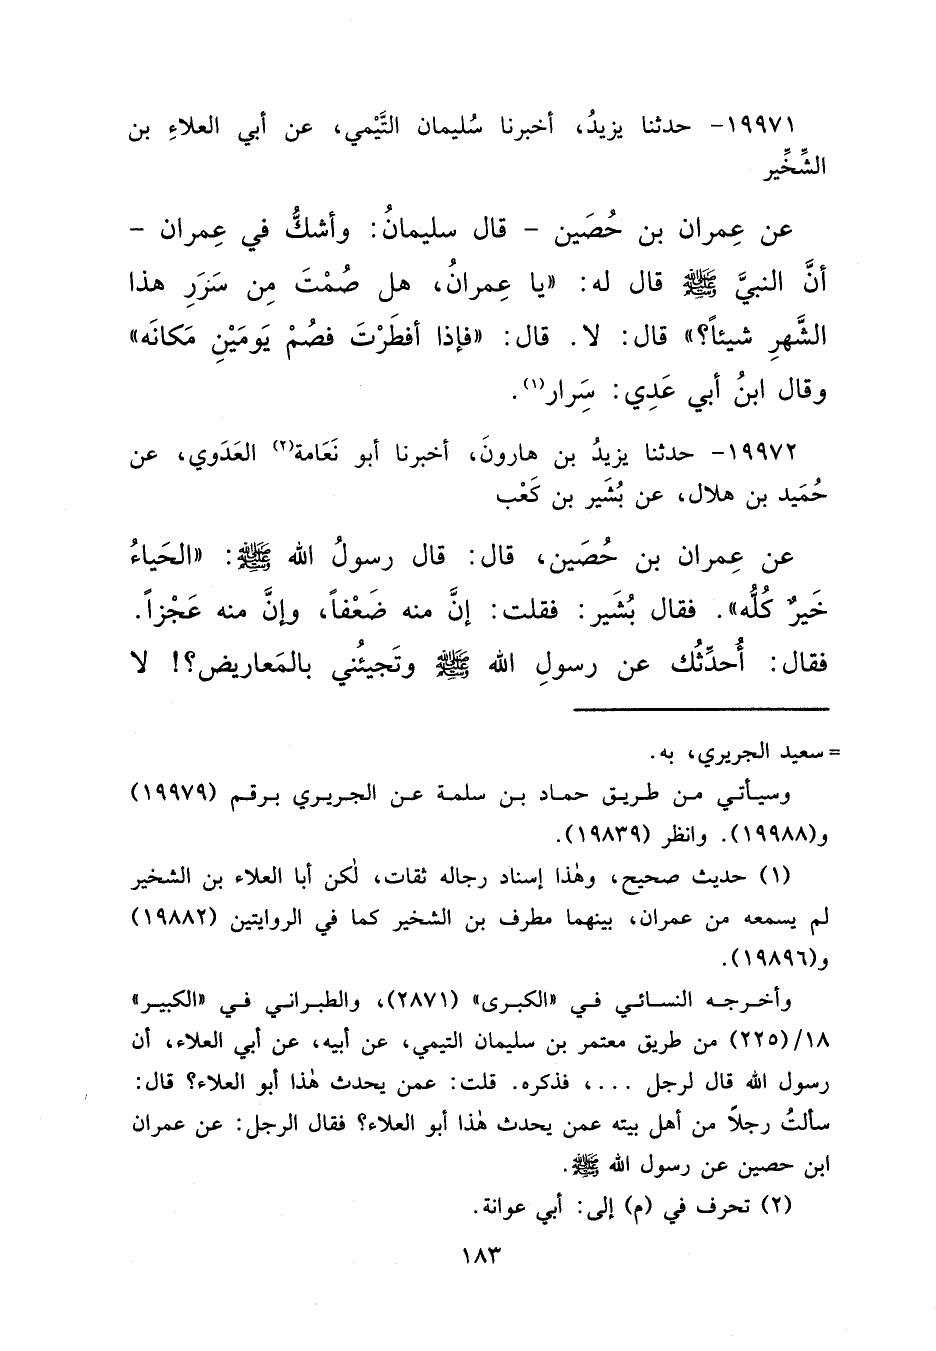 ١٩٩٧١- حدثنا يزيدُ، أخبرنا سُليمان التَّيْمي، عن أبي العلاءِ بن
الشِّخِّير
عن عِمران بن حُصَين - قال سليمانُ: وأشكُّ في عِمران -
أنَّ النبيَّ ﷺ قال له: «يا عِمرانُ، هل صُمْتَ مِن سَرَرِ هذا
الشَّهرِ شيئاً؟» قال: لا. قال: «فإذا أفطَرْتَ فصُمْ يَومَيْنِ مَكانَه»
وقال ابنُ أبي عَدِي: سَِرار(١).
١٩٩٧٢- حدثنا يزيدُ بن هارونَ، أخبرنا أبو نَعَامة(٢) العَدَوي، عن
حُمَيد بن هلال، عن بُشَير بن كَعْب
عن عِمران بن حُصَين، قال: قال رسولُ الله ﷺ: «الحَياءُ
خَيرٌ كُلُّه». فقال بُشَير: فقلت: إنَّ منه ضَعْفاً، وإنَّ منه عَجْزاً.
فقال: أُحدِّثُك عن رسولِ الله ﷺ وتَجيئُني بالمَعاريض؟! لا
= سعيد الجريري، به.
وسيأتي من طريق حماد بن سلمة عن الجريري برقم (١٩٩٧٩)
و(١٩٩٨٨). وانظر (١٩٨٣٩).
(١) حديث صحيح، وهٰذا إسناد رجاله ثقات، لٰكن أبا العلاء بن الشخير
لم يسمعه من عمران، بينهما مطرف بن الشخير كما في الروايتين (١٩٨٨٢)
و(١٩٨٩٦).
وأخرجه النسائي في «الكبرى» (٢٨٧١)، والطبراني في «الكبير»
١٨/(٢٢٥) من طريق معتمر بن سليمان التيمي، عن أبيه، عن أبي العلاء، أن
رسول الله قال لرجل ...، فذكره. قلت: عمن يحدث هٰذا أبو العلاء؟ قال:
سألتُ رجلاً من أهل بيته عمن يحدث هٰذا أبو العلاء؟ فقال الرجل: عن عمران
ابن حصين عن رسول الله ﷺ.
(٢) تحرف في (م) إلى: أبي عوانة.
١٨٣